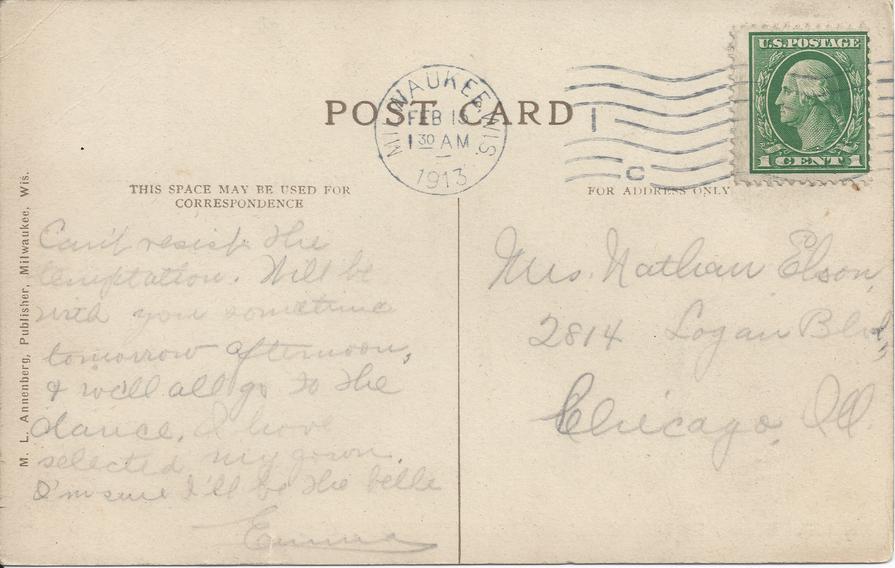 POST CARD
MILWAUKEE, WIS.
FEB 1
1 30 AM
1913
U.S. POSTAGE
1 CENT 1
THIS SPACE MAY BE USED FOR
CORRESPONDENCE
FOR ADDRESS ONLY
M. L. Annenberg, Publisher, Milwaukee, Wis.
Can't resist the
temptation. Will be
with you sometime
tomorrow afternoon,
& we'll all go to the
dance. I have
selected my gown.
I'm sure I'll be the belle
Emma
Mrs. Nathan Elson,
2814 Logan Blvd,
Chicago, Ill.